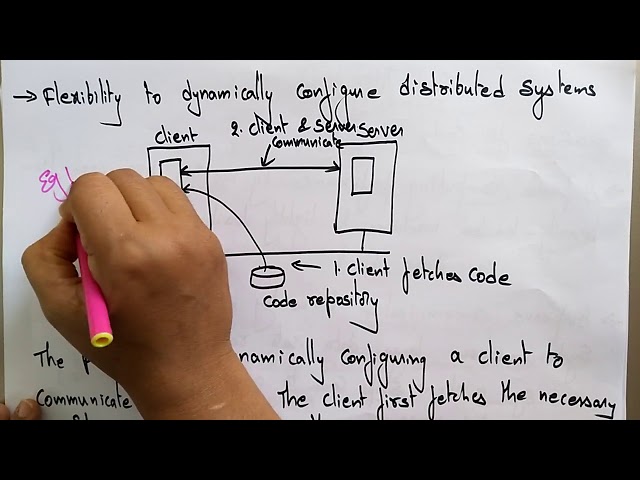 → Flexibility to dynamically configure distributed systems
2. client & server
client
communicate
server
Eg
1. client fetches code
code repository
The dynamically configuring a client to
communicate The client first fetches the necessary